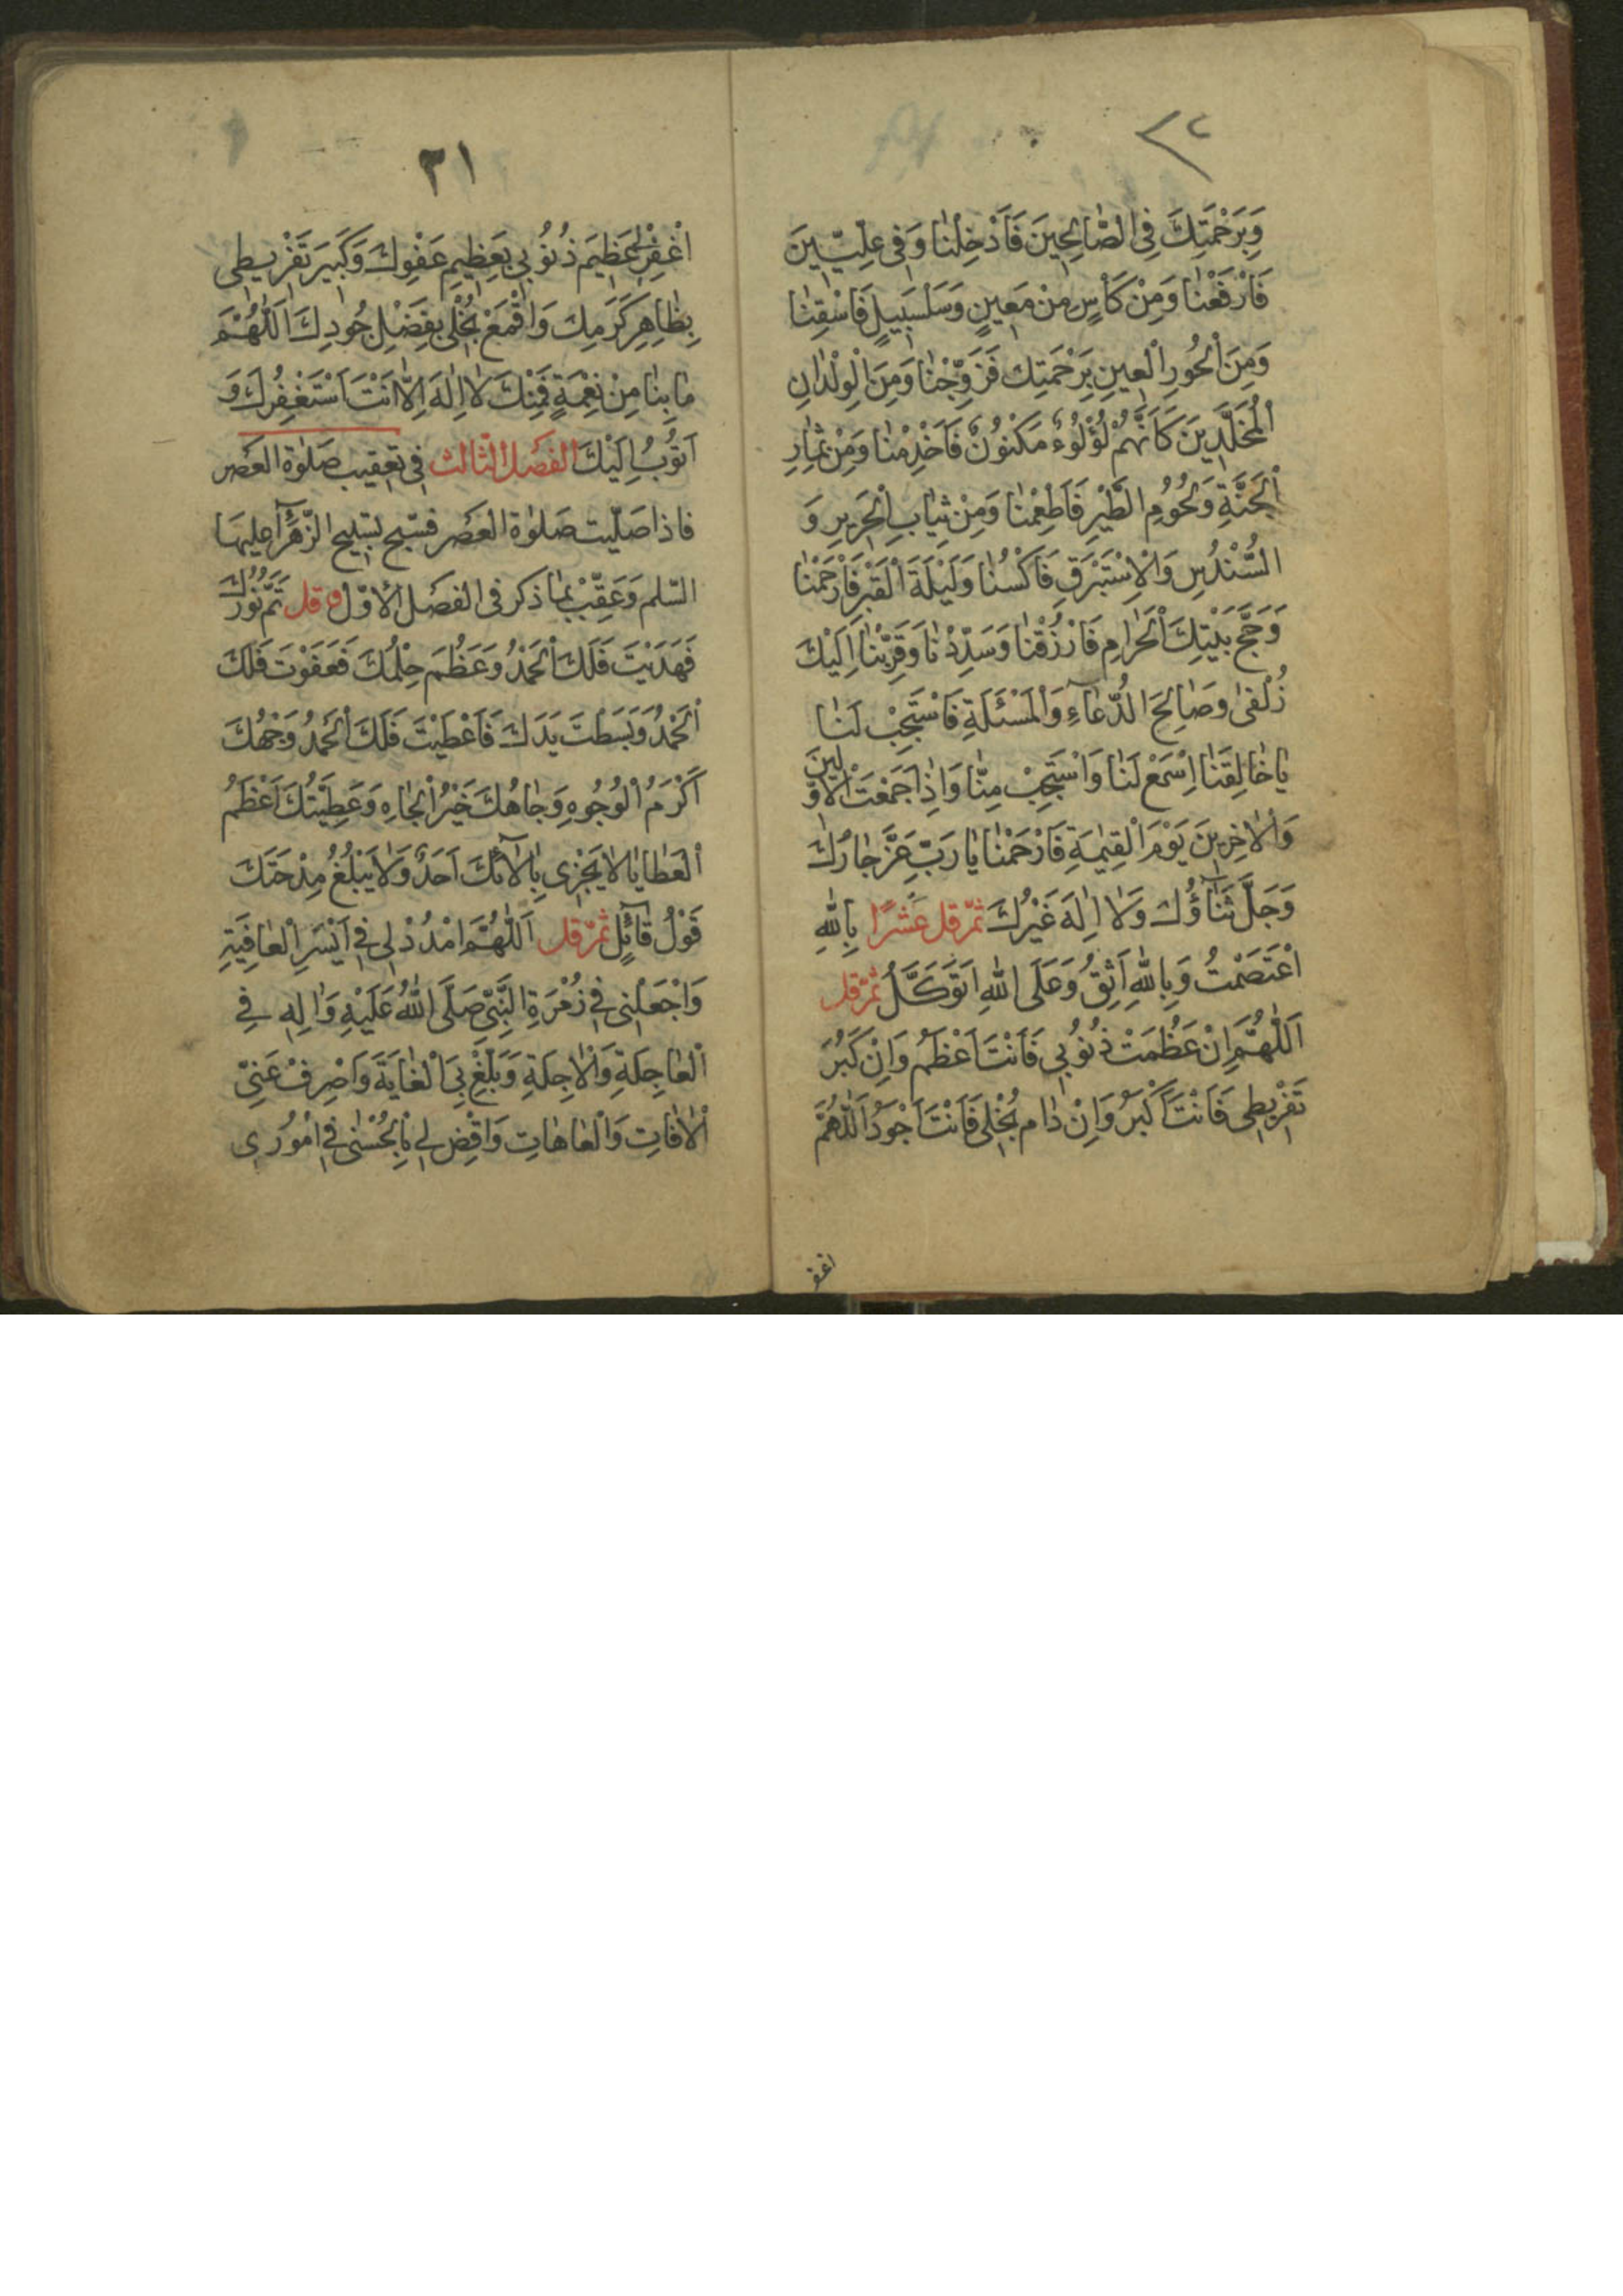 وَبِرَحْمَتِكَ فِي الصّٰالِحِينَ فَاَدْخِلْنٰا وَفِي عِلِّيّٖينَ
فَارْفَعْنٰا وَمِنْ كَأْسٍ مِنْ مَعِينٍ وَسَلْسَبِيلٍ فَاسْقِنٰا
وَمِنَ الْحُورِ الْعِينِ بِرَحْمَتِكَ فَزَوِّجْنٰا وَمِنَ الْوِلْدٰانِ
الْمُخَلَّدِينَ كَاَنَّهُمْ لُؤْلُوءٌ مَكْنُونٌ فَاَخْدِمْنٰا وَمِنْ ثِمٰارِ
الْجَنَّةِ وَلُحُومِ الطَّيْرِ فَاَطْعِمْنٰا وَمِنْ ثِيٰابِ الْحَرِيرِ وَ
السُّنْدُسِ وَالْاِسْتَبْرَقِ فَاكْسُنٰا وَلَيْلَةَ الْقَبْرِ فَارْحَمْنٰا
وَحَجَّ بَيْتِكَ الْحَرٰامِ فَارْزُقْنٰا وَسَدِّدْنٰا وَقَرِّبْنٰا اِلَيْكَ
زُلْفىٰ وَصٰالِحَ الدُّعٰاۤءِ وَالْمَسْئَلَةِ فَاسْتَجِبْ لَنٰا
يٰا خٰالِقَنٰا اِسْمَعْ لَنٰا وَاسْتَجِبْ مِنّٰا وَاِذٰا جَمَعْتَ الْاَوَّلِينَ
وَالْاٰخِرِينَ يَوْمَ الْقِيٰمَةِ فَارْحَمْنٰا يٰا رَبِّ عَزَّ جٰارُكَ
وَجَلَّ ثَنٰاۤؤُكَ وَلٰا اِلٰهَ غَيْرُكَ ثمّ قل عشرًا بِاللّٰهِ
اعْتَصَمْتُ وَبِاللّٰهِ اَثِقُ وَعَلَى اللّٰهِ اَتَوَكَّلُ ثمّ قل
اَللّٰهُمَّ اِنْ عَظُمَتْ ذُنُوبِي فَاَنْتَ اَعْظَمُ وَاِنْ كَبُرَ
تَفْرِيطِي فَاَنْتَ اَكْبَرُ وَاِنْ دٰامَ بُخْلِي فَاَنْتَ اَجْوَدُ اَللّٰهُمَّ
اغفر
٣١
اغْفِرْ لِي عَظِيمَ ذُنُوبِي بِعَظِيمِ عَفْوِكَ وَكَبِيرَ تَفْرِيطِي
بِظٰاهِرِ كَرَمِكَ وَاقْمَعْ بُخْلِي بِفَضْلِ جُودِكَ اَللّٰهُمَّ
مٰا بِنٰا مِنْ نِعْمَةٍ فَمِنْكَ لٰا اِلٰهَ اِلّٰا اَنْتَ اَسْتَغْفِرُكَ وَ
اَتُوبُ اِلَيْكَ الفصل الثّالث فِي تعقيب صلوٰة العصر
فاذا صلّيت صلوٰة العصر فسبّح تسبيح الزّهرآء عليها
السّلم وَعَقِّبْ بما ذكر فى الفصل الأوّل و قل تَمَّ نُورُكَ
فَهَدَيْتَ فَلَكَ الْحَمْدُ وَعَظُمَ حِلْمُكَ فَعَفَوْتَ فَلَكَ
الْحَمْدُ وَبَسَطْتَ يَدَكَ فَاَعْطَيْتَ فَلَكَ الْحَمْدُ وَجْهُكَ
اَكْرَمُ الْوُجُوهِ وَجٰاهُكَ خَيْرُ الْجٰاهِ وَعَطِيَّتُكَ اَعْظَمُ
الْعَطٰايٰا لٰا يَجْزِي بِاٰلٰاۤئِكَ اَحَدٌ وَلٰا يَبْلُغُ مِدْحَتَكَ
قَوْلُ قٰاۤئِلٍ ثمّ قل اَللّٰهُمَّ امْدُدْ لِي فِي اَيْسَرِ الْعٰافِيَةِ
وَاجْعَلْنِي فِي زُمْرَةِ النَّبِيِّ صَلَّى اللّٰهُ عَلَيْهِ وَاٰلِهِ فِي
الْعٰاجِلَةِ وَالْاٰجِلَةِ وَبَلِّغْ بِيَ الْغٰايَةَ وَاصْرِفْ عَنِّي
الْاٰفٰاتِ وَالْعٰاهٰاتِ وَاقْضِ لِي بِالْحُسْنٰى فِي اُمُورِي